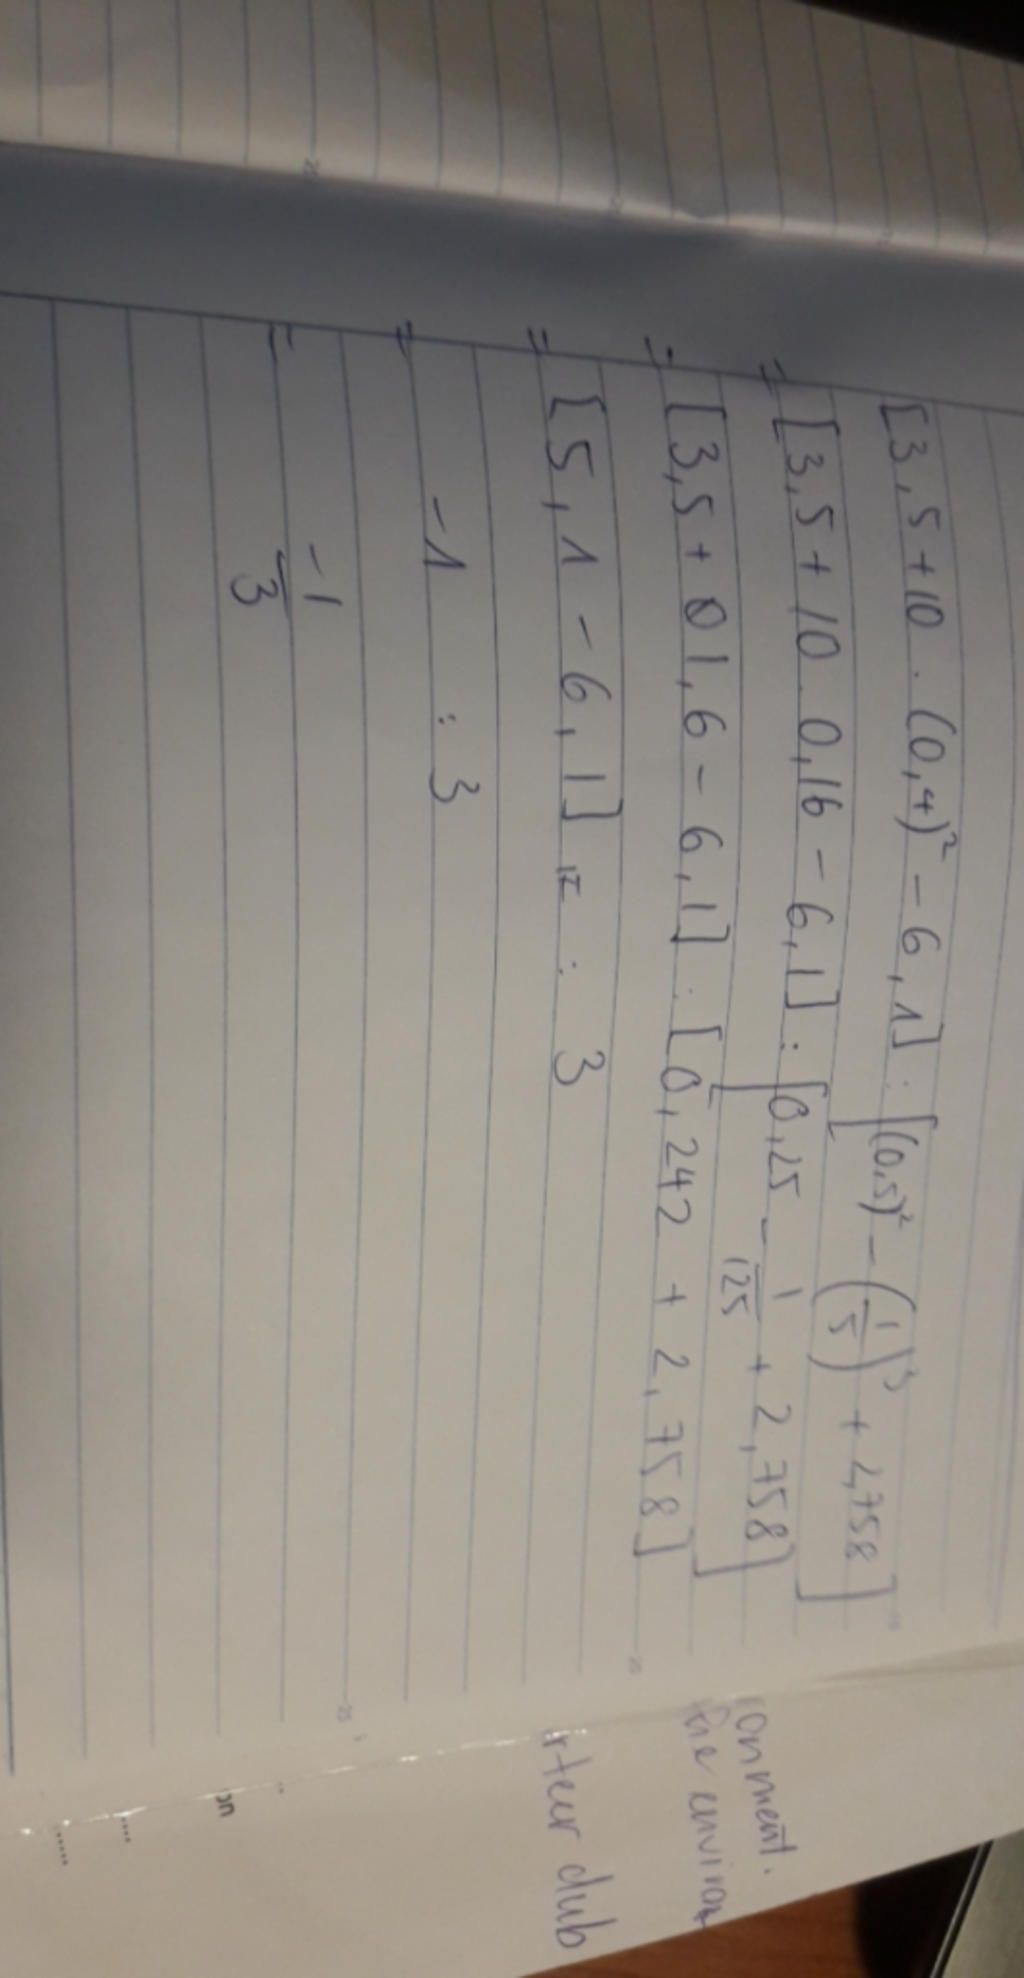 [3,5+10 . (0,4)² - 6,1] : [(0,5)² - (1/5)³ + 2,758]
= [3,5 + 10 . 0,16 - 6,1] : [0,25 - 1/125 + 2,758]
= [3,5 + 1,6 - 6,1] : [0,242 + 2,758]
= [5,1 - 6,1] : 3
= -1 : 3
= -1/3
onment.
the environ
rteur club
on